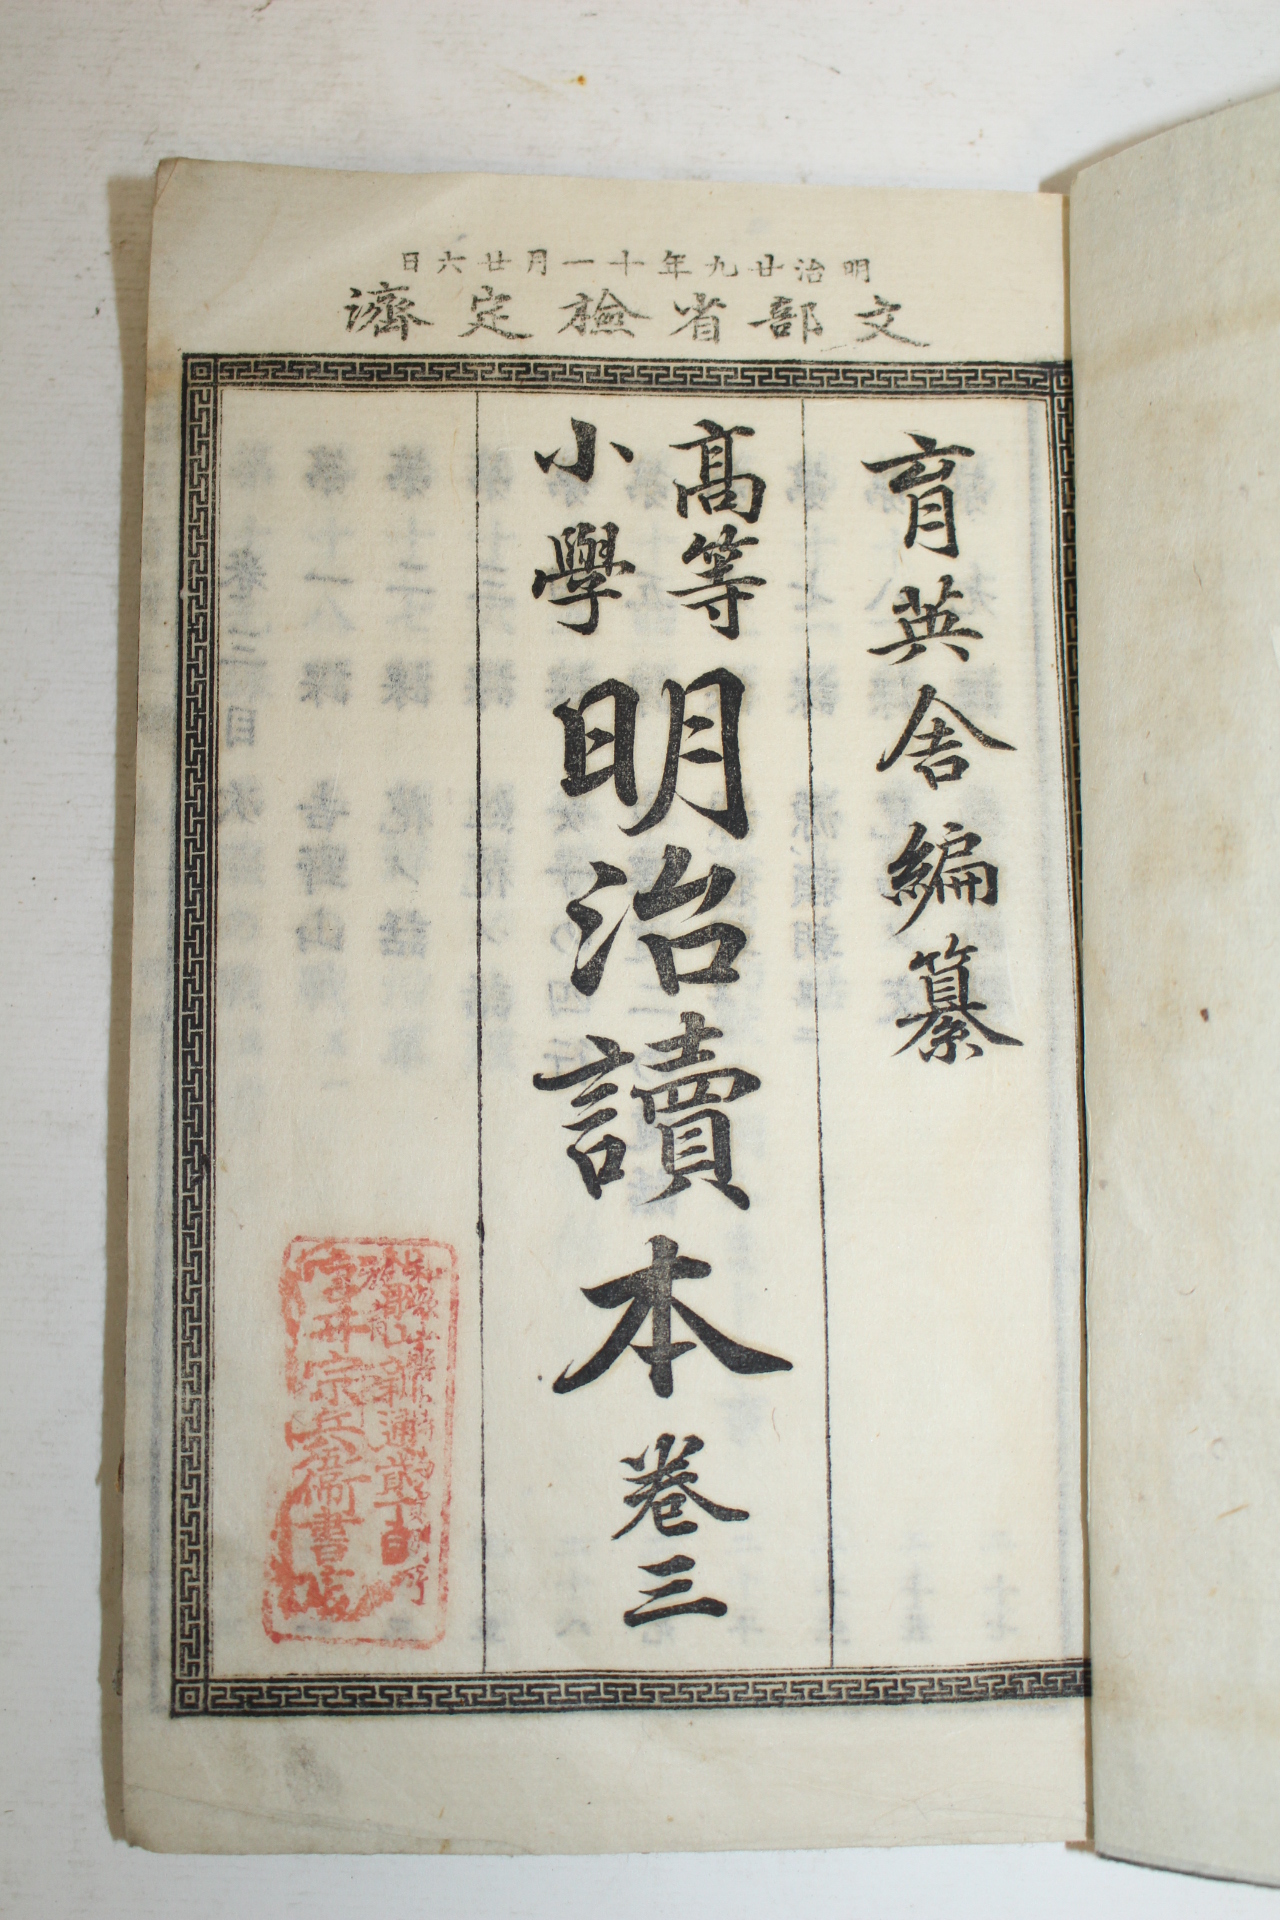 明治廿九年十一月廿六日
文部省檢定濟
育英舍編纂
高等
小學
明治讀本 卷三
宗兵衞書店